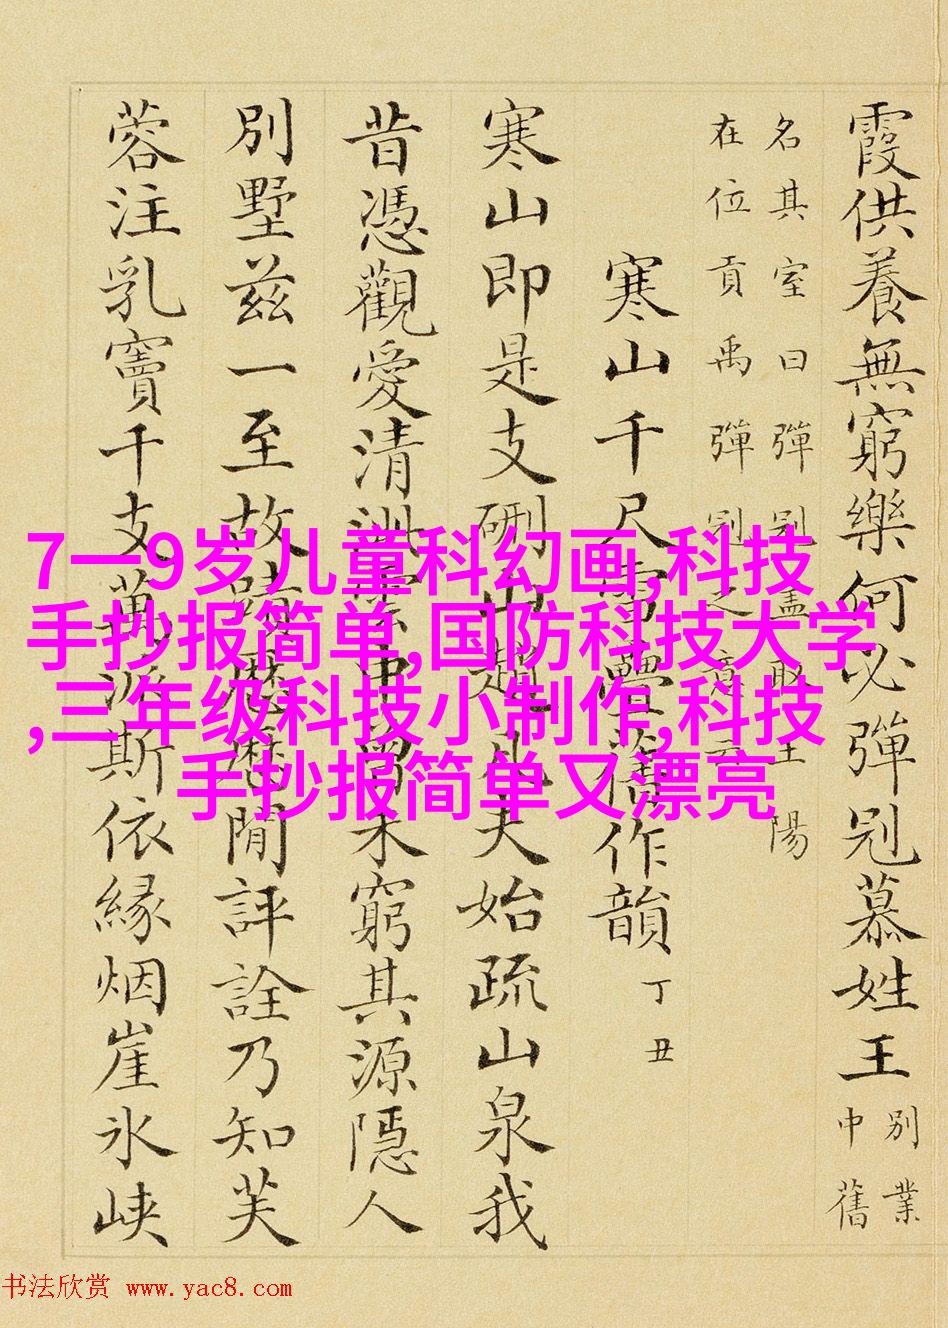 霞供養無窮樂何必彈冠慕姓王
別業
中舊
名其室曰彈冠盖取王陽
在位貢禹彈冠之意云
寒山千尺雪疊舊作韻 丁丑
寒山即是支硎山趙凡夫始疏山泉我
昔憑觀愛清泚車曾未窮其源隱人
別墅兹一至故蹟歷歷閒評詮乃知芙
蓉注乳竇千支萬派斯依緣烟崖氷峡
7一9岁儿童科幻画,科技
手抄报简单,国防科技大学
,三年级科技小制作,科技
手抄报简单又漂亮
书法欣赏 www.yac8.com